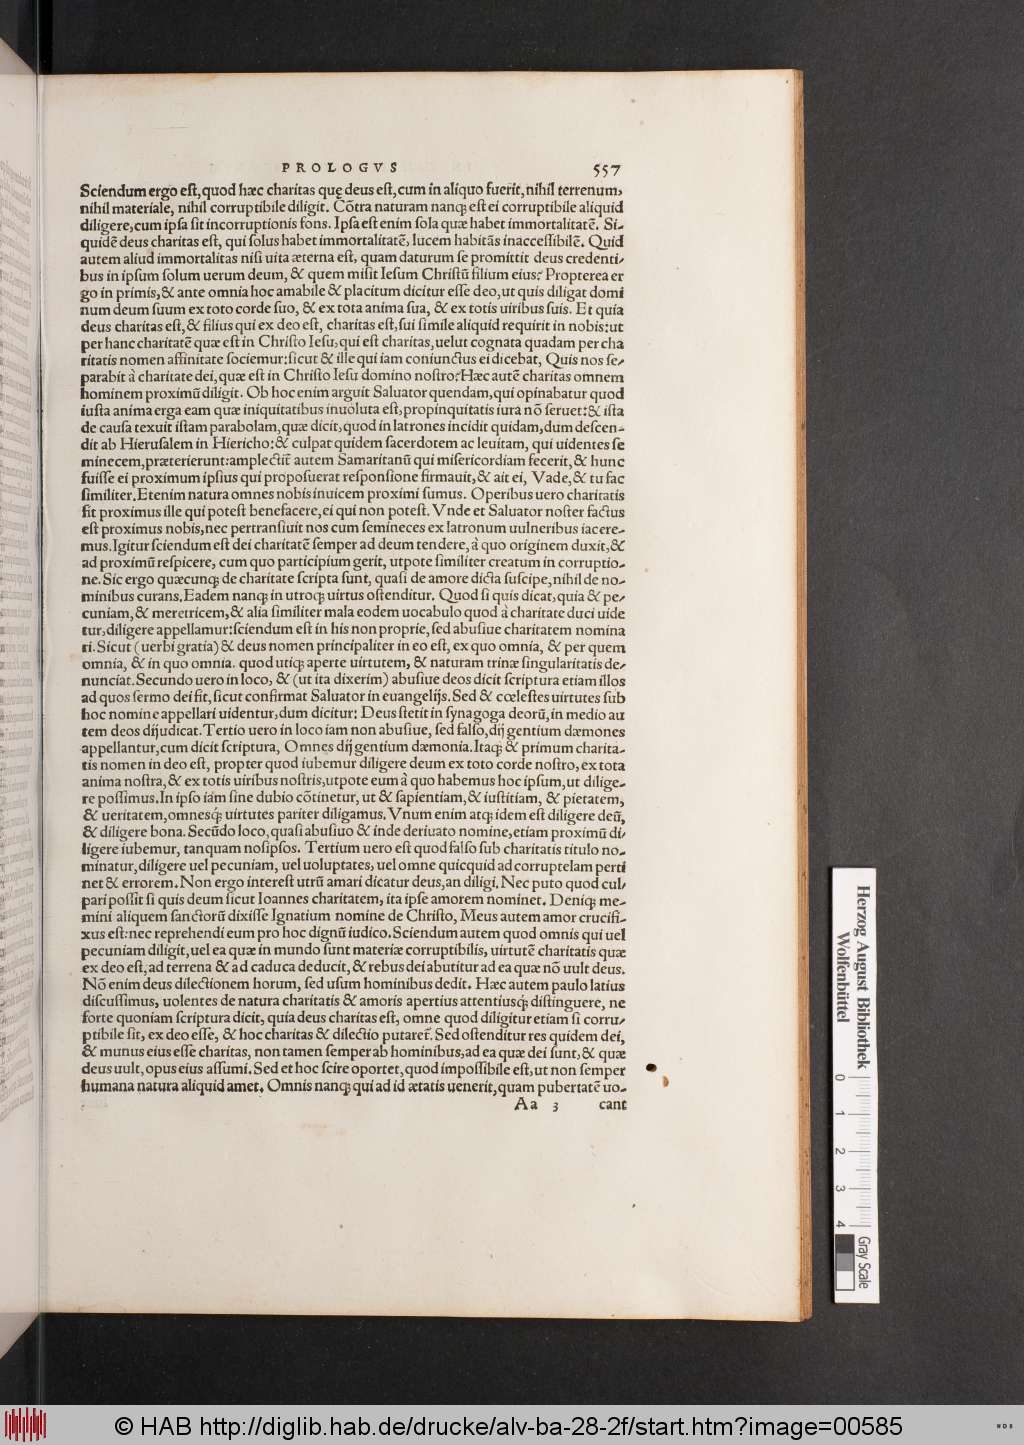 PROLOGVS 557
Sciendum ergo est, quod hæc charitas quę deus est, cum in aliquo fuerit, nihil terrenum,
nihil materiale, nihil corruptibile diligit. Cõtra naturam nanq; est ei corruptibile aliquid
diligere, cum ipsa sit incorruptionis fons. Ipsa est enim sola quæ habet immortalitatẽ. Si-
quidẽ deus charitas est, qui solus habet immortalitatẽ, lucem habitãs inaccessibilẽ. Quid
autem aliud immortalitas nisi uita æterna est, quam daturum se promittit deus credenti-
bus in ipsum solum uerum deum, & quem misit Iesum Christũ filium eius? Propterea er
go in primis, & ante omnia hoc amabile & placitum dicitur esse deo, ut quis diligat domi
num deum suum ex toto corde suo, & ex tota anima sua, & ex totis uiribus suis. Et quia
deus charitas est, & filius qui ex deo est, charitas est, sui simile aliquid requirit in nobis: ut
per hanc charitatẽ quæ est in Christo Iesu, qui est charitas, uelut cognata quadam per cha
ritatis nomen affinitate sociemur: sicut & ille qui iam coniunctus ei dicebat, Quis nos se-
parabit à charitate dei, quæ est in Christo Iesu domino nostro? Hæc autẽ charitas omnem
hominem proximũ diligit. Ob hoc enim arguit Saluator quendam, qui opinabatur quod
iusta anima erga eam quæ iniquitatibus inuoluta est, propinquitatis iura nõ seruet: & ista
de causa texuit istam parabolam, quæ dicit, quod in latrones incidit quidam, dum descen-
dit ab Hierusalem in Hiericho: & culpat quidem sacerdotem ac leuitam, qui uidentes se
minecem, præterierunt: amplectit̃ autem Samaritanũ qui misericordiam fecerit, & hunc
fuisse ei proximum ipsius qui proposuerat responsione firmauit, & ait ei, Vade, & tu fac
similiter. Etenim natura omnes nobis inuicem proximi sumus. Operibus uero charitatis
fit proximus ille qui potest benefacere, ei qui non potest. Vnde et Saluator noster factus
est proximus nobis, nec pertransiuit nos cum semineces ex latronum uulneribus iacere-
mus. Igitur sciendum est dei charitatẽ semper ad deum tendere, à quo originem duxit, &
ad proximũ respicere, cum quo participium gerit, utpote similiter creatum in corruptio-
ne. Sic ergo quæcunq; de charitate scripta sunt, quasi de amore dicta suscipe, nihil de no-
minibus curans. Eadem nanq; in utroq; uirtus ostenditur. Quod si quis dicat, quia & pe-
cuniam, & meretricem, & alia similiter mala eodem uocabulo quod à charitate duci uide
tur, diligere appellamur: sciendum est in his non proprie, sed abusiue charitatem nomina
ri. Sicut (uerbi gratia) & deus nomen principaliter in eo est, ex quo omnia, & per quem
omnia, & in quo omnia. quod utiq; aperte uirtutem, & naturam trinæ singularitatis de-
nunciat. Secundo uero in loco, & (ut ita dixerim) abusiue deos dicit scriptura etiam illos
ad quos sermo dei fit, sicut confirmat Saluator in euangelijs. Sed & cœlestes uirtutes sub
hoc nomine appellari uidentur, dum dicitur: Deus stetit in synagoga deorũ, in medio au
tem deos dijudicat. Tertio uero in loco iam non abusiue, sed falso, dij gentium dæmones
appellantur, cum dicit scriptura, Omnes dij gentium dæmonia. Itaq; & primum charita-
tis nomen in deo est, propter quod iubemur diligere deum ex toto corde nostro, ex tota
anima nostra, & ex totis uiribus nostris, utpote eum à quo habemus hoc ipsum, ut dilige-
re possimus. In ipso iam sine dubio cõtinetur, ut & sapientiam, & iustitiam, & pietatem,
& ueritatem, omnesq́; uirtutes pariter diligamus. Vnum enim atq; idem est diligere deũ,
& diligere bona. Secũdo loco, quasi abusiuo & inde deriuato nomine, etiam proximũ di-
ligere iubemur, tanquam nosipsos. Tertium uero est quod falso sub charitatis titulo no-
minatur, diligere uel pecuniam, uel uoluptates, uel omne quicquid ad corruptelam perti
net & errorem. Non ergo interest utrũ amari dicatur deus, an diligi. Nec puto quod cul-
pari possit si quis deum sicut Ioannes charitatem, ita ipse amorem nominet. Deniq; me-
mini aliquem sanctorũ dixisse Ignatium nomine de Christo, Meus autem amor crucifi-
xus est: nec reprehendi eum pro hoc dignũ iudico. Sciendum autem quod omnis qui uel
pecuniam diligit, uel ea quæ in mundo sunt materiæ corruptibilis, uirtutẽ charitatis quæ
ex deo est, ad terrena & ad caduca deducit, & rebus dei abutitur ad ea quæ nõ uult deus.
Nõ enim deus dilectionem horum, sed usum hominibus dedit. Hæc autem paulo latius
discussimus, uolentes de natura charitatis & amoris apertius attentiusq́; distinguere, ne
forte quoniam scriptura dicit, quia deus charitas est, omne quod diligitur etiam si corru-
ptibile sit, ex deo esse, & hoc charitas & dilectio putaret̃. Sed ostenditur res quidem dei,
& munus eius esse charitas, non tamen semper ab hominibus, ad ea quæ dei sunt, & quæ
deus uult, opus eius assumi. Sed et hoc scire oportet, quod impossibile est, ut non semper
humana natura aliquid amet. Omnis nanq; qui ad id ætatis uenerit, quam pubertatẽ uo-
Aa 3 cant
Herzog August Bibliothek
Wolfenbüttel
0 1 2 3 4
Gray Scale
© HAB http://diglib.hab.de/drucke/alv-ba-28-2f/start.htm?image=00585